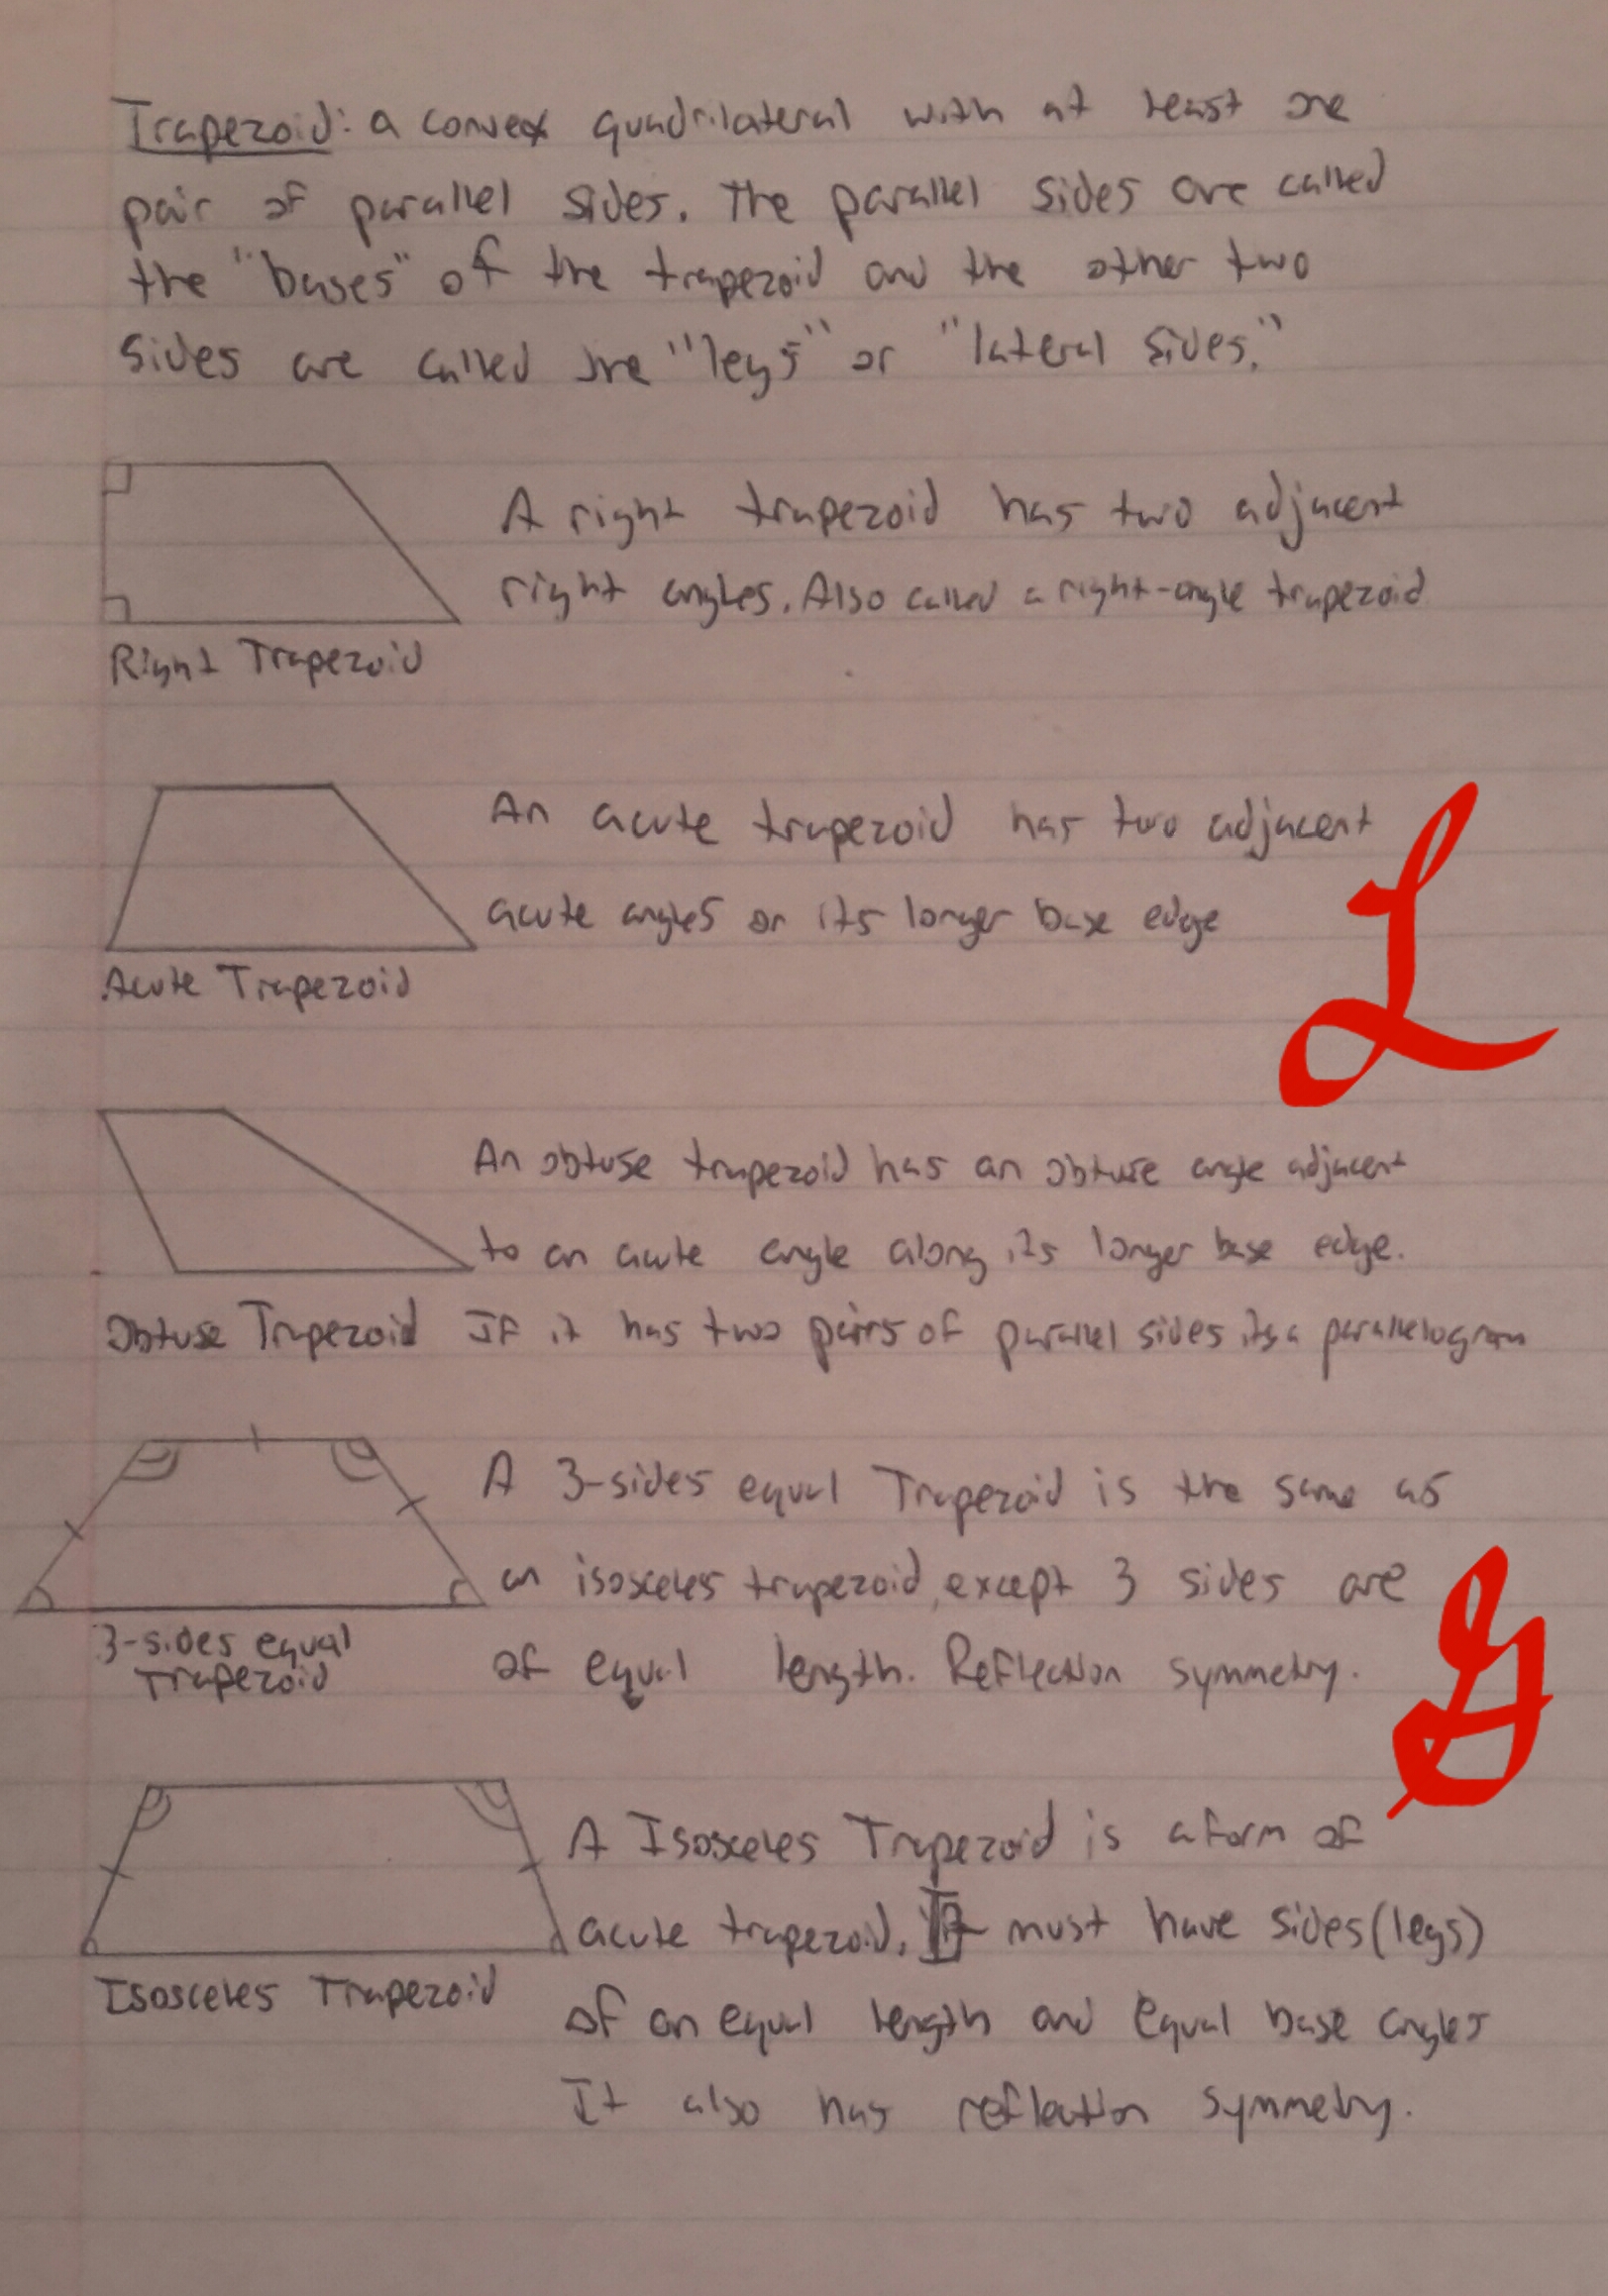 Trapezoid: a convex quadrilateral with at least one
pair of parallel sides. The parallel sides are called
the "bases" of the trapezoid and the other two
sides are called the "legs" or "lateral sides."
A right trapezoid has two adjacent
right angles. Also called a right-angle trapezoid
Right Trapezoid
An acute trapezoid has two adjacent
acute angles on its longer base edge
Acute Trapezoid
L
An obtuse trapezoid has an obtuse angle adjacent
to an acute angle along its longer base edge.
Obtuse Trapezoid If it has two pairs of parallel sides its a parallelogram
A 3-sides equal Trapezoid is the same as
an isosceles trapezoid, except 3 sides are
of equal length. Reflection symmetry.
3-sides equal
Trapezoid
G
A Isosceles Trapezoid is a form of
acute trapezoid. It must have sides (legs)
of an equal length and equal base angles
It also has reflection symmetry.
Isosceles Trapezoid